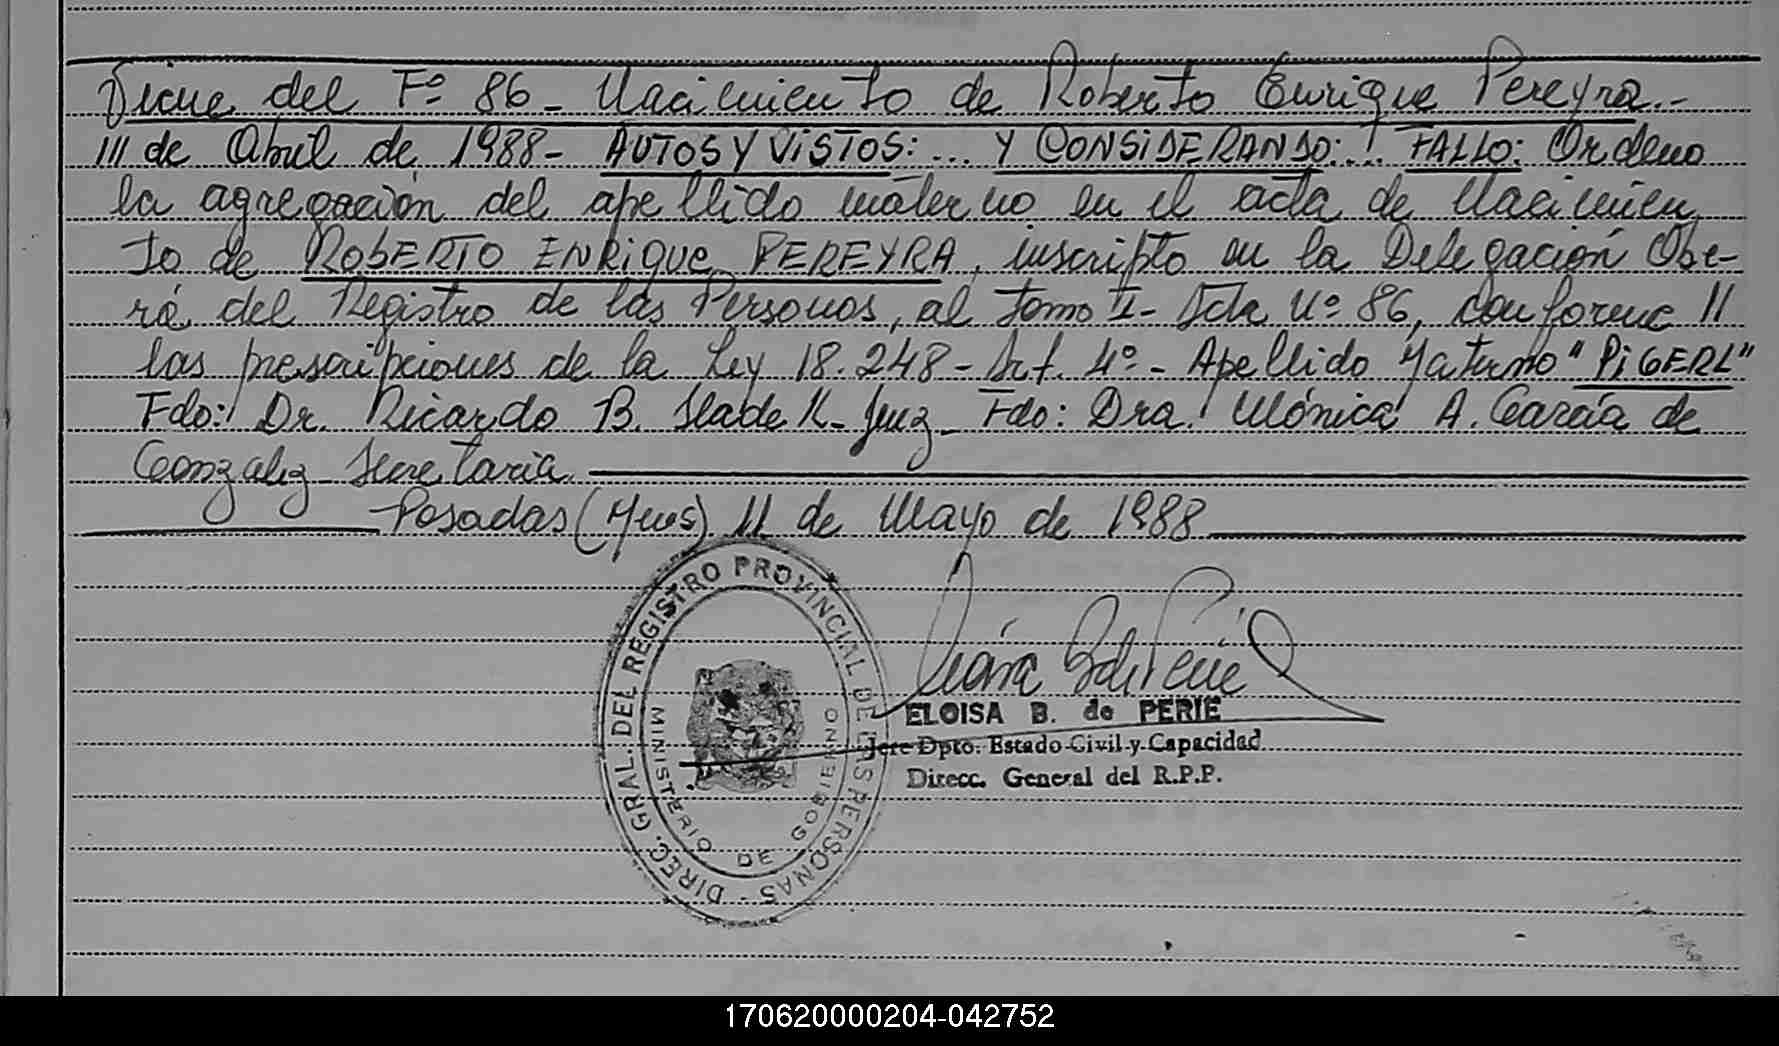 Viene del Fº 86 - Nacimiento de Roberto Enrique Pereyra.-
/// de Abril de 1988- AUTOS Y VISTOS: ... Y CONSIDERANDO: ... FALLO: Ordeno
la agregación del apellido materno en el acta de Nacimien
to de ROBERTO ENRIQUE PEREYRA, inscripto en la Delegación Obe-
rá del Registro de las Personas, al Tomo II- Acta Nº 86, conforme //
las prescripciones de la Ley 18.248 - Art. 4º - Apellido Materno "PIGERL"
Fdo: Dr. Ricardo B. Slade K. Juez - Fdo: Dra. Mónica A. García de
Gonzalez Secretaria.
Posadas (Mnes) 11 de Mayo de 1988
DIREC. GRAL. DEL REGISTRO PROVINCIAL DE LAS PERSONAS -
MINISTERIO DE GOBIERNO
ELOISA B. de PERIE
Jefe Dpto. Estado Civil y Capacidad
Direcc. General del R.P.P.
170620000204-042752